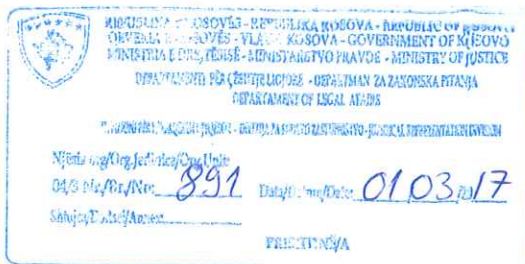 REPUBLIKA E KOSOVËS - REPUBLIKA KOSOVA - REPUBLIC OF KOSOVO
QEVERIA E KOSOVËS - VLADA KOSOVA - GOVERNMENT OF KOSOVO
MINISTRIA E DREJTËSISË - MINISTARSTVO PRAVDE - MINISTRY OF JUSTICE
DEPARTAMENTI PËR ÇËSHTJE LIGJORE - DEPARTMAN ZA ZAKONSKA PITANJA
DEPARTAMENT OF LEGAL
JUDICIAL REPRESENTATION DIVISION
Njësia org/Org. Jedinica/Org. Unit:
04/3 Nr./Br./No: 891 Data/Datum/Date: 01 03 2017
Shtojca/Dodaci/Annex:
PRISHTINË/A